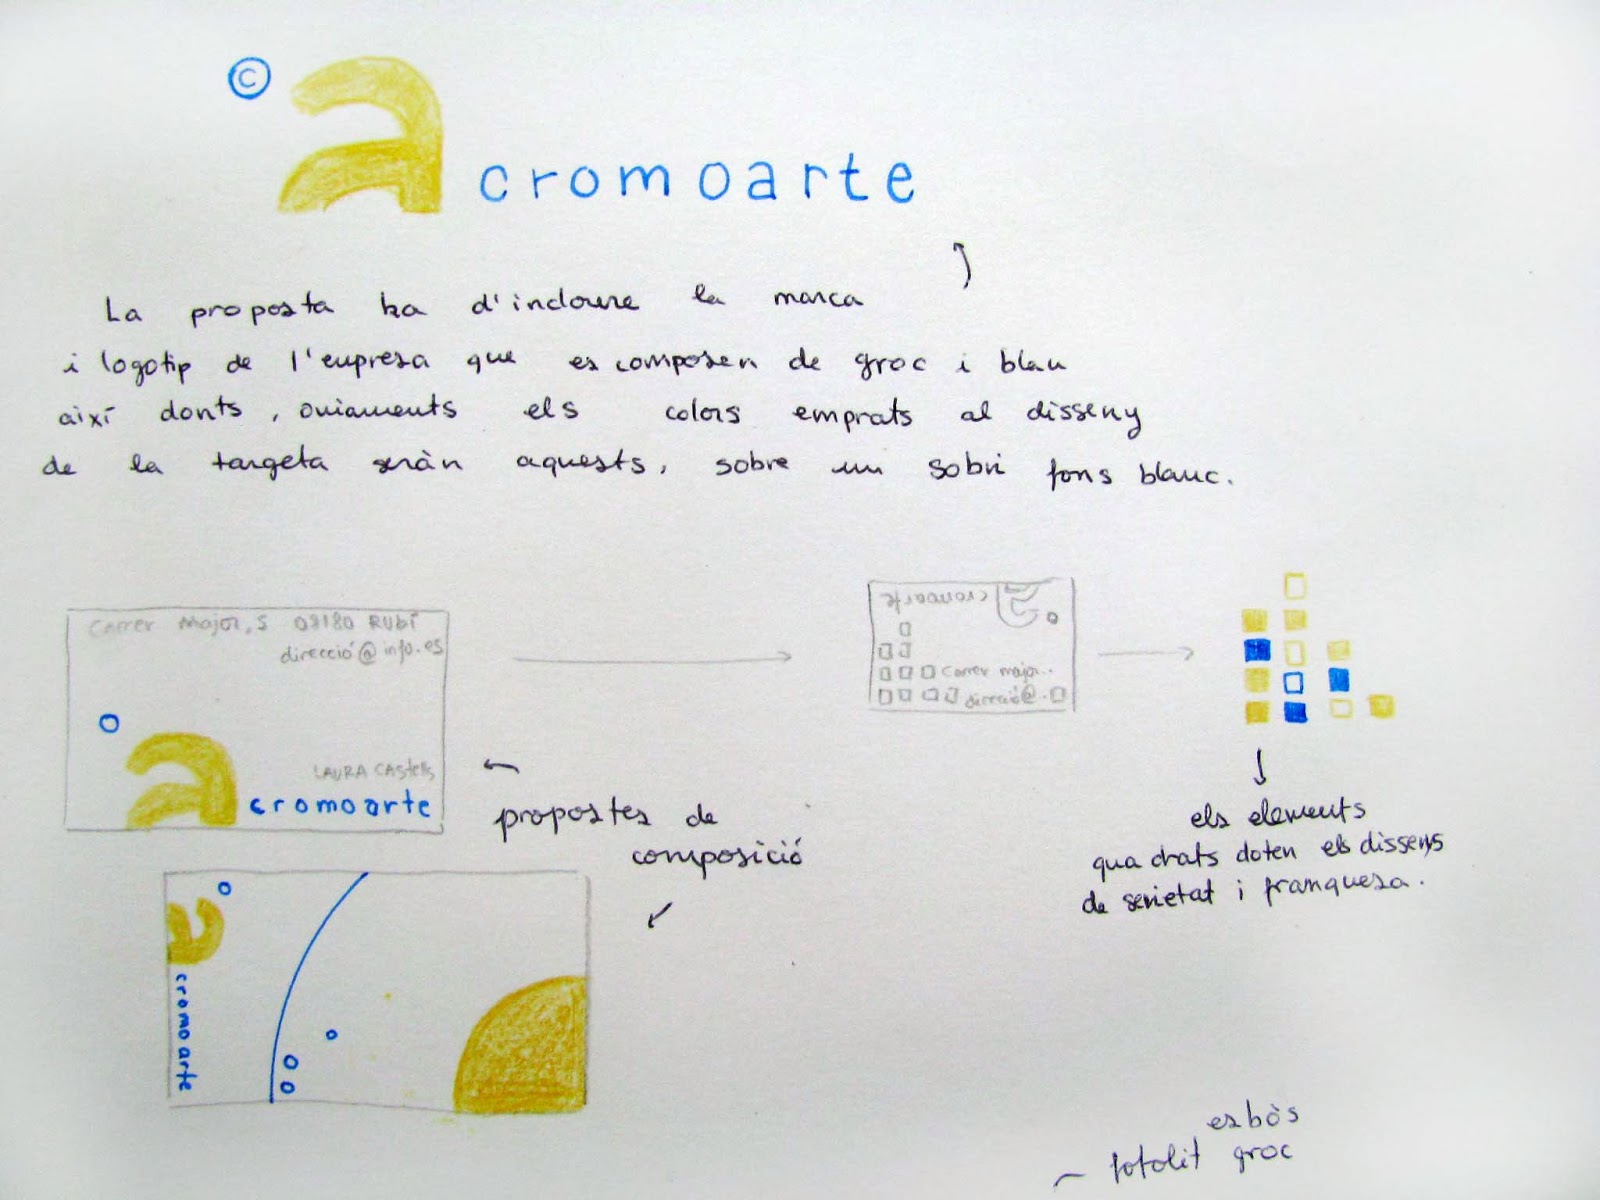 ©
a cromoarte
La proposta ha d'incloure la marca
i logotip de l'empresa que es composen de groc i blau
així donts, oviaments els colors emprats al disseny
de la targeta seràn aquests, sobre un sobri fons blanc.
Carrer Major, 5 08180 RUBÍ
direcció@info.es
LAURA CASTells
a cromoarte
cromoarte
a
Carrer major..
direcció@.
propostes de
composició
els elements
quadrats doten els dissenys
de serietat i franquesa.
a
cromoarte
esbòs
- fotolit groc